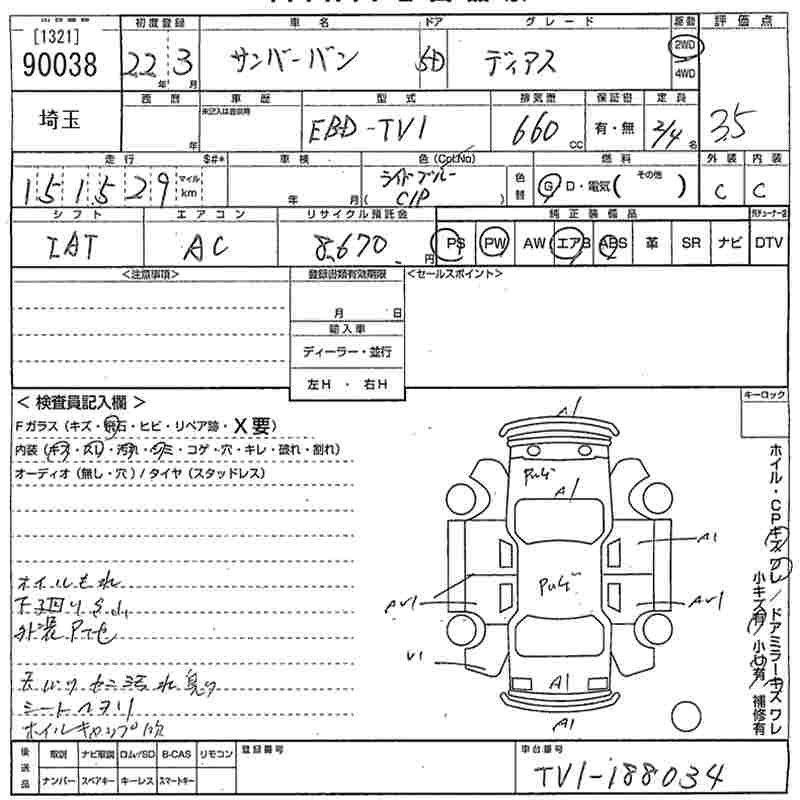 [1321]
90038
初度登録 車名 ドア グレード 駆動 評価点
22年 3月 サンバーバン 5D ディアス 2WD 4WD
埼玉
西暦 車歴 型式 排気量 保証書 定員
年 未記入は自家用 EBD-TV1 660cc 有・無 2/4名 3.5
走行 $#* 車検 色(Col.No) 燃料 外装 内装
151529 マイル km 年 月 ライトブルー C1P 色替 G D・電気(その他) C C
シフト エアコン リサイクル預託金 純正装備品
IAT AC 8,670円 PS PW AW エアB ABS 革 SR ナビ DTV
<注意事項> 登録書類有効期限 <セールスポイント>
月 日
輸入車
ディーラー・並行
左H ・ 右H
<検査員記入欄> キーロック
Fガラス(キズ・飛石・ヒビ・リペア跡・X要)
内装(キズ・スレ・汚れ・シミ・コゲ・穴・キレ・破れ・割れ)
オーディオ(無し・穴)/タイヤ(スタッドレス)
オイルもれ
下回りSa,
シートヘタリ
ホイルキャップ欠
A1
PuS
A1
A1
PuS
AU1
AU1
U1
A1
A1
ホイル・CPキズワレ/ドアミラーキズワレ
小キズ有/小凹有/補修有
後送品 取説 ナビ取説 ロム/SD B-CAS リモコン 登録番号 車台番号
ナンバー スペアキー キーレス スマートキー TV1-188034